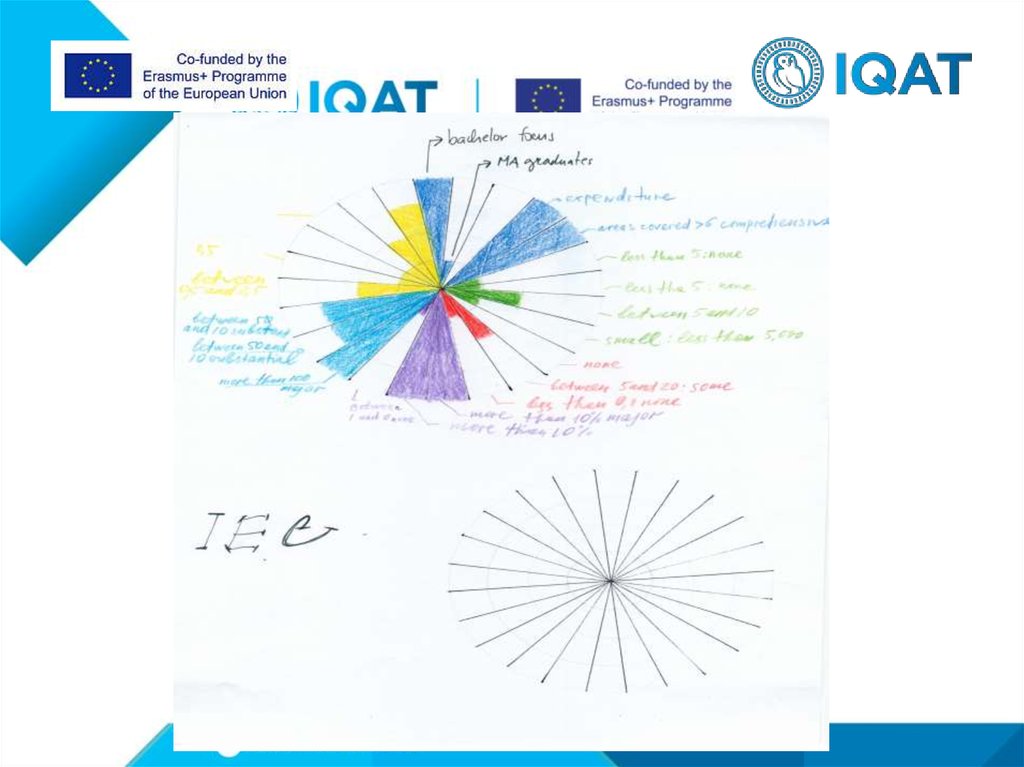 Co-funded by the
Erasmus+ Programme
of the European Union
IQAT
Co-funded by the
Erasmus+ Programme
IQAT
bachelor focus
MA graduates
expenditure
areas covered >6 comprehensive
less than 5: none
less the 5: none
between 5 and 10
small: less then 5,000
none
between 5 and 20: some
less then 0,1 none
more than 10% major
more than 10%
between
1 and
more than 100
major
between 50 and
10 substantial
between 50
and 10 substant
between